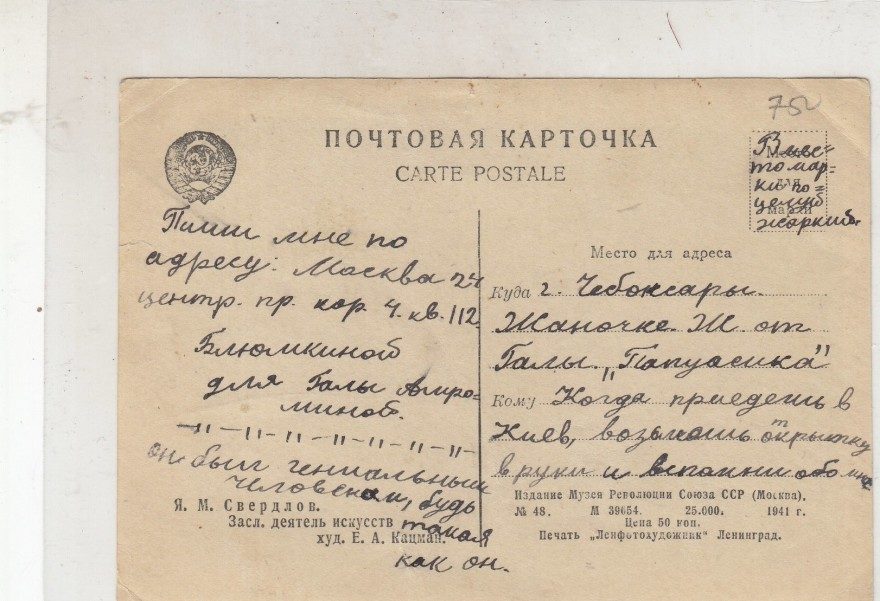 75
ПОЧТОВАЯ КАРТОЧКА
CARTE POSTALE
Вмес=
то мар=
ки по=
целуй
жаркий.
Место
для
марки
Пиши мне по
адресу: Москва 24
центр. пр. кор. 4. кв. 112.
Блюмкиной
для Галы Амро-
миной.
-"-"-"-"-"-"-"-
он был гениальным
человеком, будь
такая
как он.
Я. М. Свердлов.
Засл. деятель искусств
худ. Е. А. Кацман.
Место для адреса
Куда г. Чебоксары.
Жаночке. Ж. от
Галы. "Папуасика"
Кому Когда приедешь в
Киев, возьмешь открытку
в руки и вспомни обо мне
Издание Музея Революции Союза ССР (Москва).
№ 48. М 39054. 25.000. 1941 г.
Цена 50 коп.
Печать „Ленфотохудожник" Ленинград.